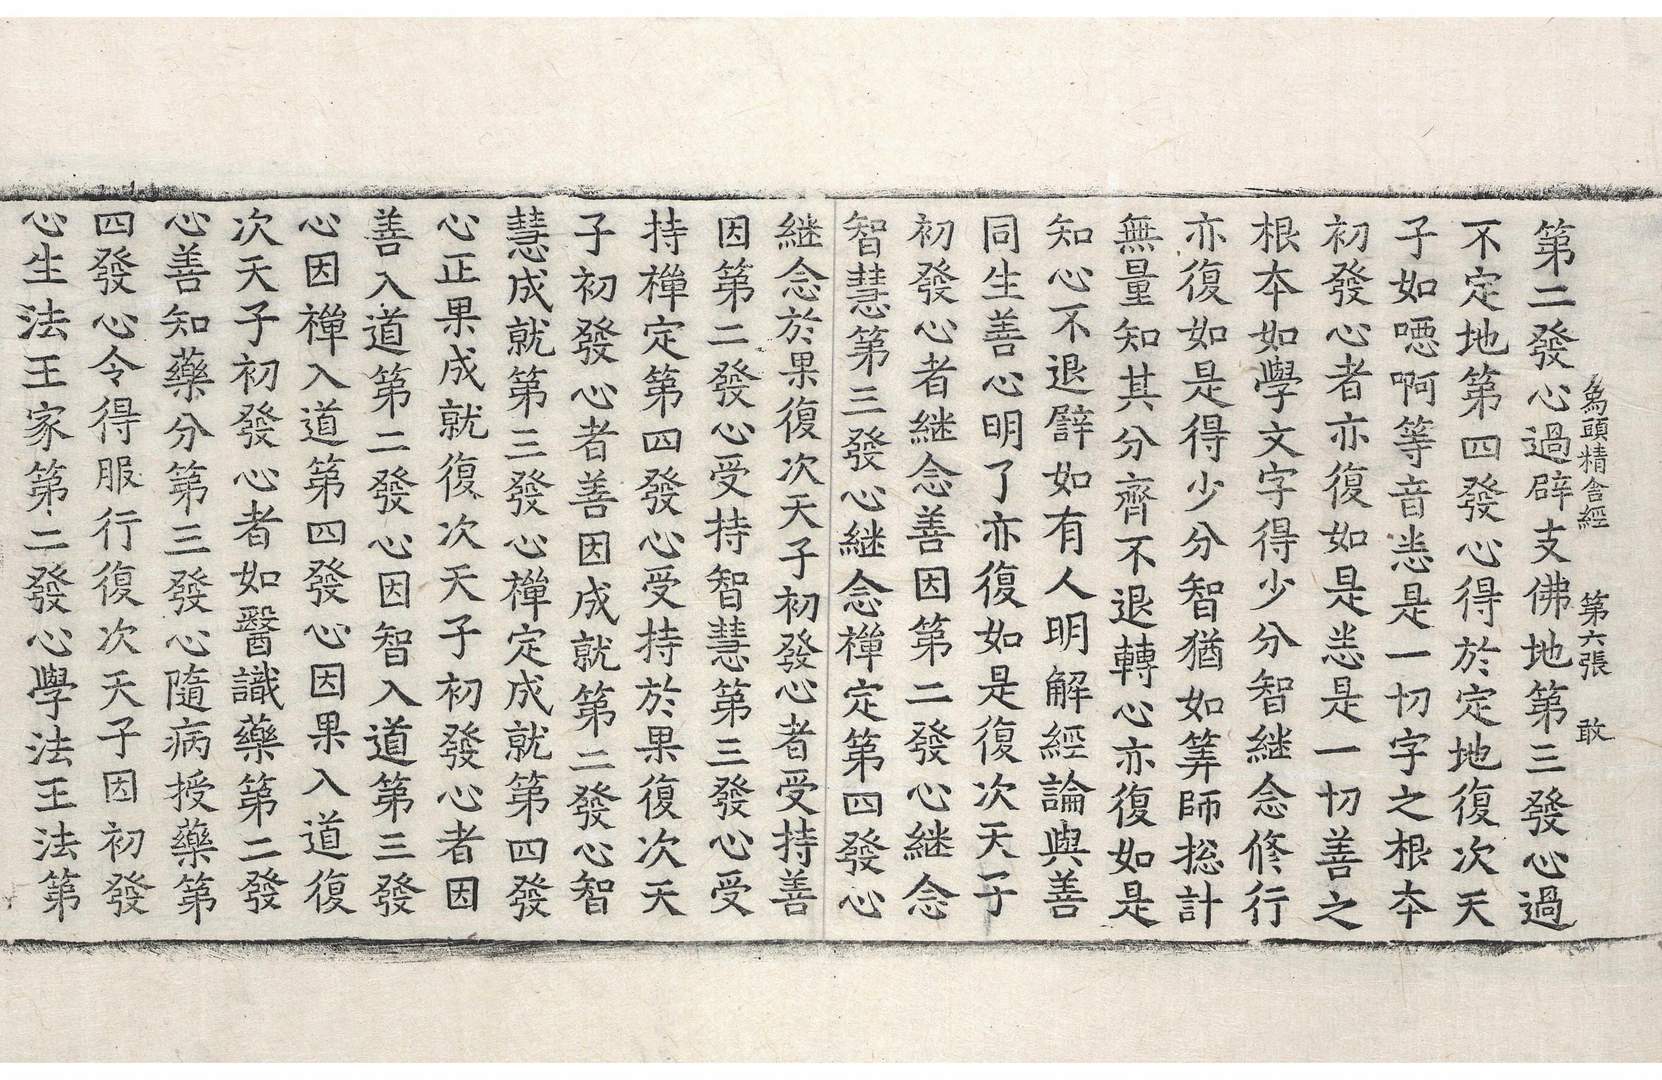 為頭精舍經　第六張　敢
第二發心過辟支佛地第三發心過
不定地第四發心得於定地復次天
子如㗁啊等音悉是一切字之根本
初發心者亦復如是悉是一切善之
根本如學文字得少分智継念修行
亦復如是得少分智猶如筭師捴計
無量知其分齊不退轉心亦復如是
知心不退譬如有人明解經論與善
同生善心明了亦復如是復次天子
初發心者継念善因第二發心継念
智慧第三發心継念禪定第四發心
継念於果復次天子初發心者受持善
因第二發心受持智慧第三發心受
持禪定第四發心受持於果復次天
子初發心者善因成就第二發心智
慧成就第三發心禪定成就第四發
心正果成就復次天子初發心者因
善入道第二發心因智入道第三發
心因禪入道第四發心因果入道復
次天子初發心者如醫識藥第二發
心善知藥分第三發心隨病授藥第
四發心令得服行復次天子因初發
心生法王家第二發心學法王法第